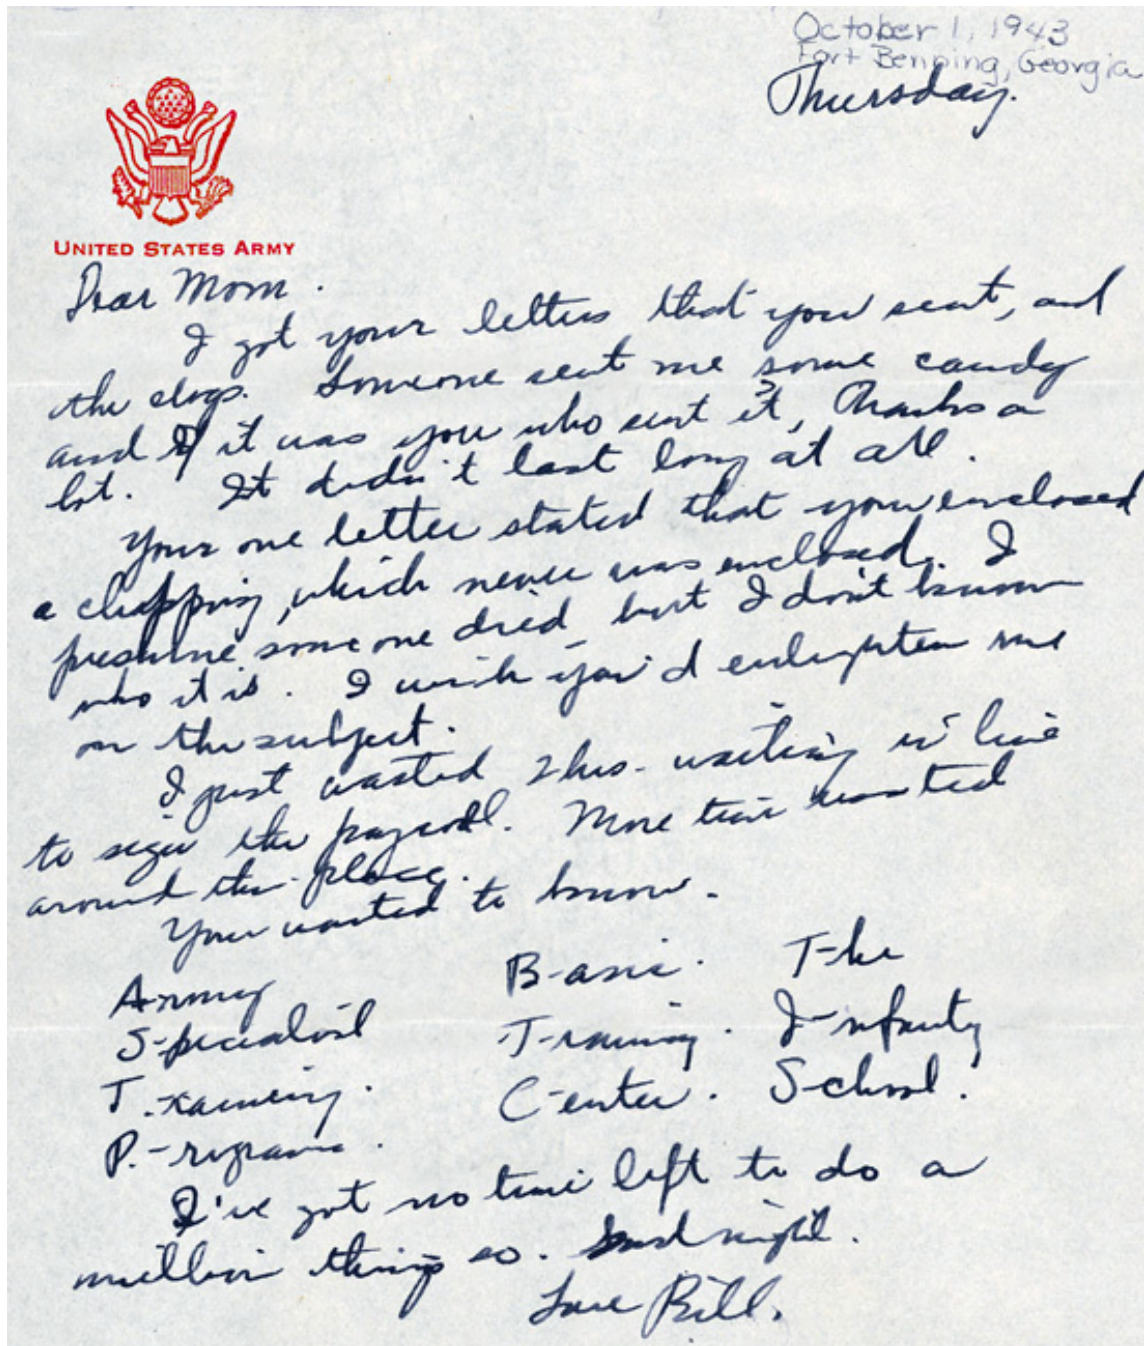 October 1, 1943
Fort Benning, Georgia
Thursday.
UNITED STATES ARMY
Dear Mom.
I got your letters that you sent, and
the clogs. Someone sent me some candy
and if it was you who sent it, Thanks a
lot. It didn't last long at all.
Your one letter stated that you enclosed
a clipping, which never was enclosed. I
presume someone died, but I don't know
who it is. I wish you'd enlighten me
on the subject.
I just wasted 2 hrs. waiting in line
to sign the payroll. More time wasted
around this place.
You wanted to know.
A-rmy B-asic. T-he
S-pecialist T-raining. I-nfantry
T.-raining. C-enter. S-chool.
P.-rogram.
I've got no time left to do a
million things so. Good night.
Love Bill.